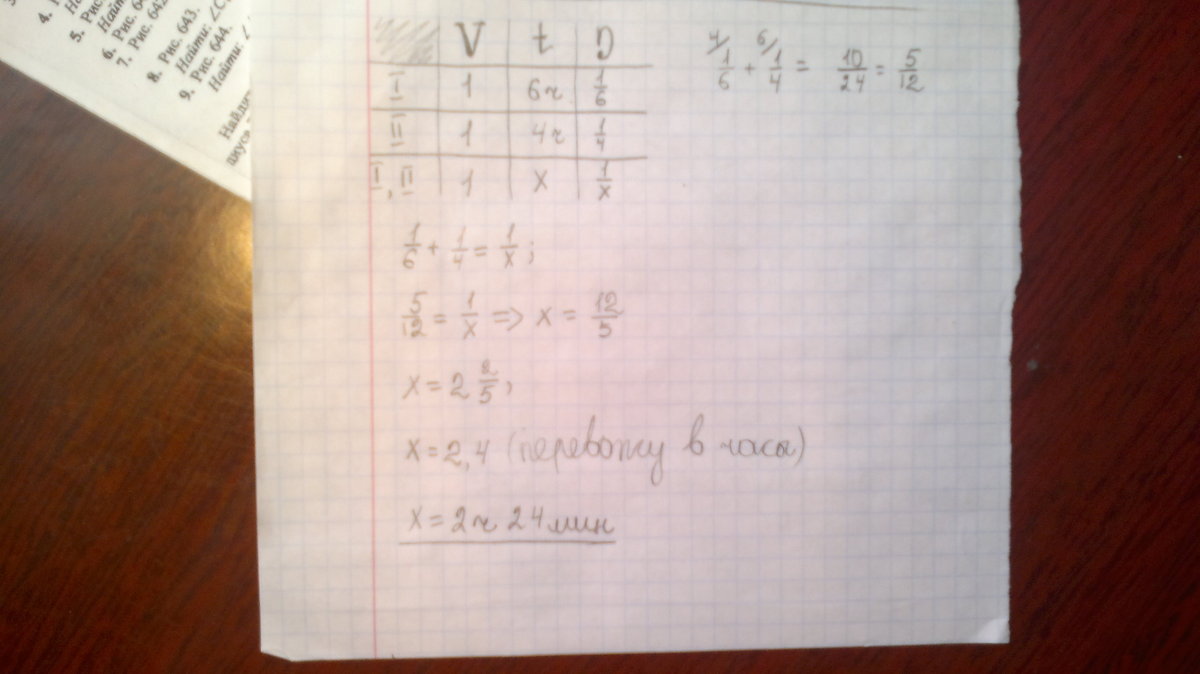 4.
5. Рис.
Найт
6. Рис. 64
7. Рис. 642
8. Рис. 643.
Найти: ∠C
9. Рис. 644.
Найти: ∠
Найдит
V t
I 1 6ч 1/6
II 1 4ч 1/4
I, II 1 x 1/x
4/ 1/6 + 6/ 1/4 = 10/24 = 5/12
1/6 + 1/4 = 1/x;
5/12 = 1/x => x = 12/5
x = 2 2/5;
x = 2,4 (перевожу в часы)
x = 2ч 24 мин